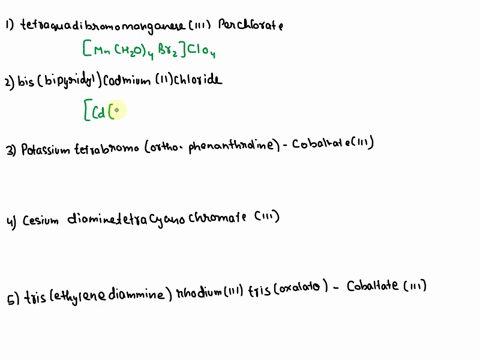 1) tetraquadibromomanganese (III) Perchlorate
[Mn (H2O)4 Br2] ClO4
2) bis (bipyridyl) Cadmium (II) chloride
[Cd (
3) Potassium tetrabromo (ortho-phenanthridine) - Cobaltate (III)
4) Cesium diaminetetracyano chromate (III)
5) tris (ethylene diammine) rhodium (III) tris (oxalato) - Cobaltate (III)